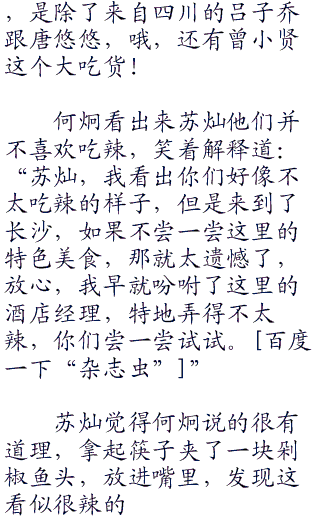 ，是除了来自四川的吕子乔
跟唐悠悠，哦，还有曾小贤
这个大吃货！
何炯看出来苏灿他们并
不喜欢吃辣，笑着解释道：
“苏灿，我看出你们好像不
太吃辣的样子，但是来到了
长沙，如果不尝一尝这里的
特色美食，那就太遗憾了，
放心，我早就吩咐了这里的
酒店经理，特地弄得不太
辣，你们尝一尝试试。[百度
一下“杂志虫”]”
苏灿觉得何炯说的很有
道理，拿起筷子夹了一块剁
椒鱼头，放进嘴里，发现这
看似很辣的